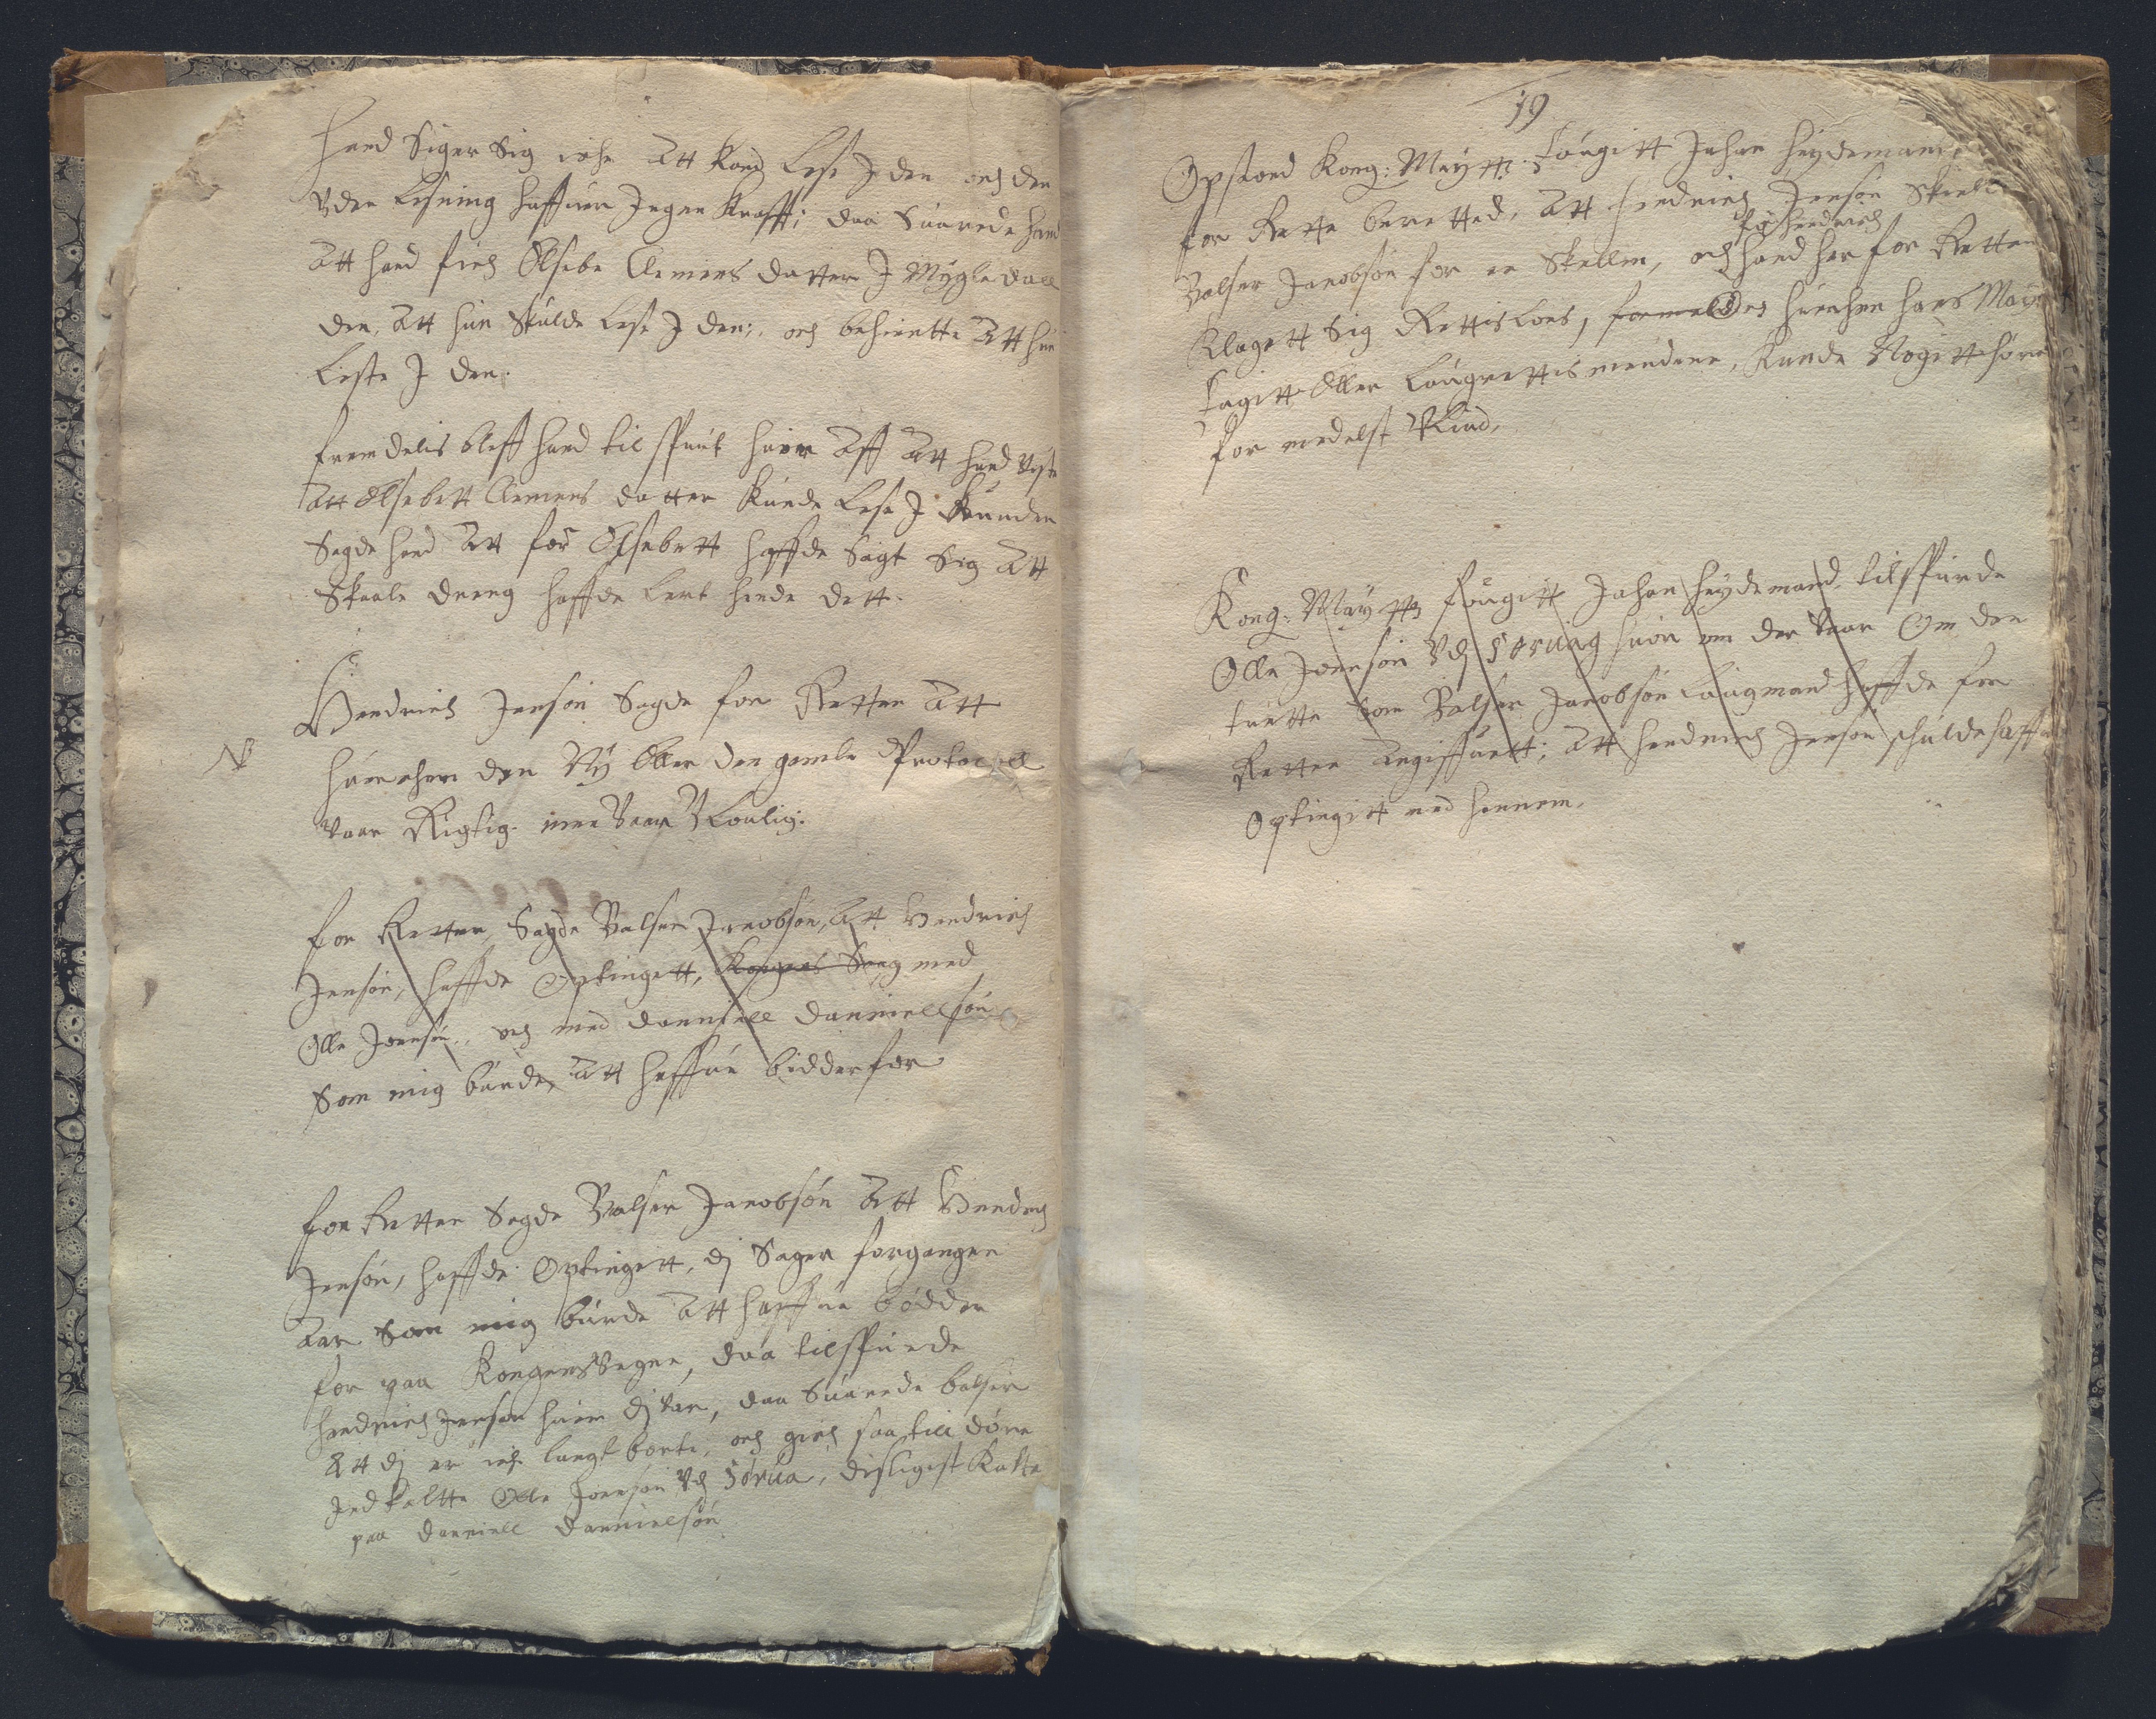 Hand Siger Sig iche Att kand Lese J den och den
Vden Lesning haffuer Jngen Krafft; daa Suarede hand
Att hand fich Elsebe Clemens datter J Mygledall
den, Att hun Skulde Lese J den; och behientte Att hun
Leste J den.
Fremdelis bleff hand til spurt huor Aff Att hand viste
Att Elsebett Clemens datter kunde Lese J
Sagde hand Att for Elsebett haffde Sagt Sig Att
Skaale dreng haffde Lert hende dett.
Hendrich Jensøn Sagde for Retten Att
NB
huerchen den Ny Eller den gamle Protocoll
vaar Rigtig. men vaar VLoulig.
For Retten, Sagde Balser Jacobsøn, Att Hendrich
Jensøn, haffde Optingett, Kongens Sag med
Olle Joensøn, och med Danniell Danniellsøn
Som mig burde, Att haffue bidder for
For Retten Sagde Balser Jacobsøn Att Hendrich
Jensøn, haffde Optingett, dj Sager forgangen
Aar Som mig burde Att haffue bødder
for paa Kongens Vegne, daa tilspurde
Hendrich Jensøn huem dj var, daa Suarede balser
Att dj er iche langt borte, och gich saa till døren
Jnd kaltte Olle Joensøn Vdj Sørua, disligist Kaltte
paa Danniell Danniellsøn
19
Opstoed Kong: Maytts: fougitt Johan Heydeman
for Rette beretted, Att Hendrich Jensøn Skielte
Balser Jacobsøn for en Skellm, och hand her for Retten
for hendrich
Klagett Sig Rettisløes, formeldes huerchen hans Maytts
fogitt Eller Laugrettismendene, kunde Nogitt høre
for medelst Vind,
Kong: Maytts fougitt Johan Heydemand, tilspurde
Olle Joensøn Vdj Søruog huor om det vaar Om den
trette Som Balser Jacobsøn Laugmand haffde for
Retten Angiffuett; Att Hendrich Jensøn schulde haffue
Optingitt med hannem,